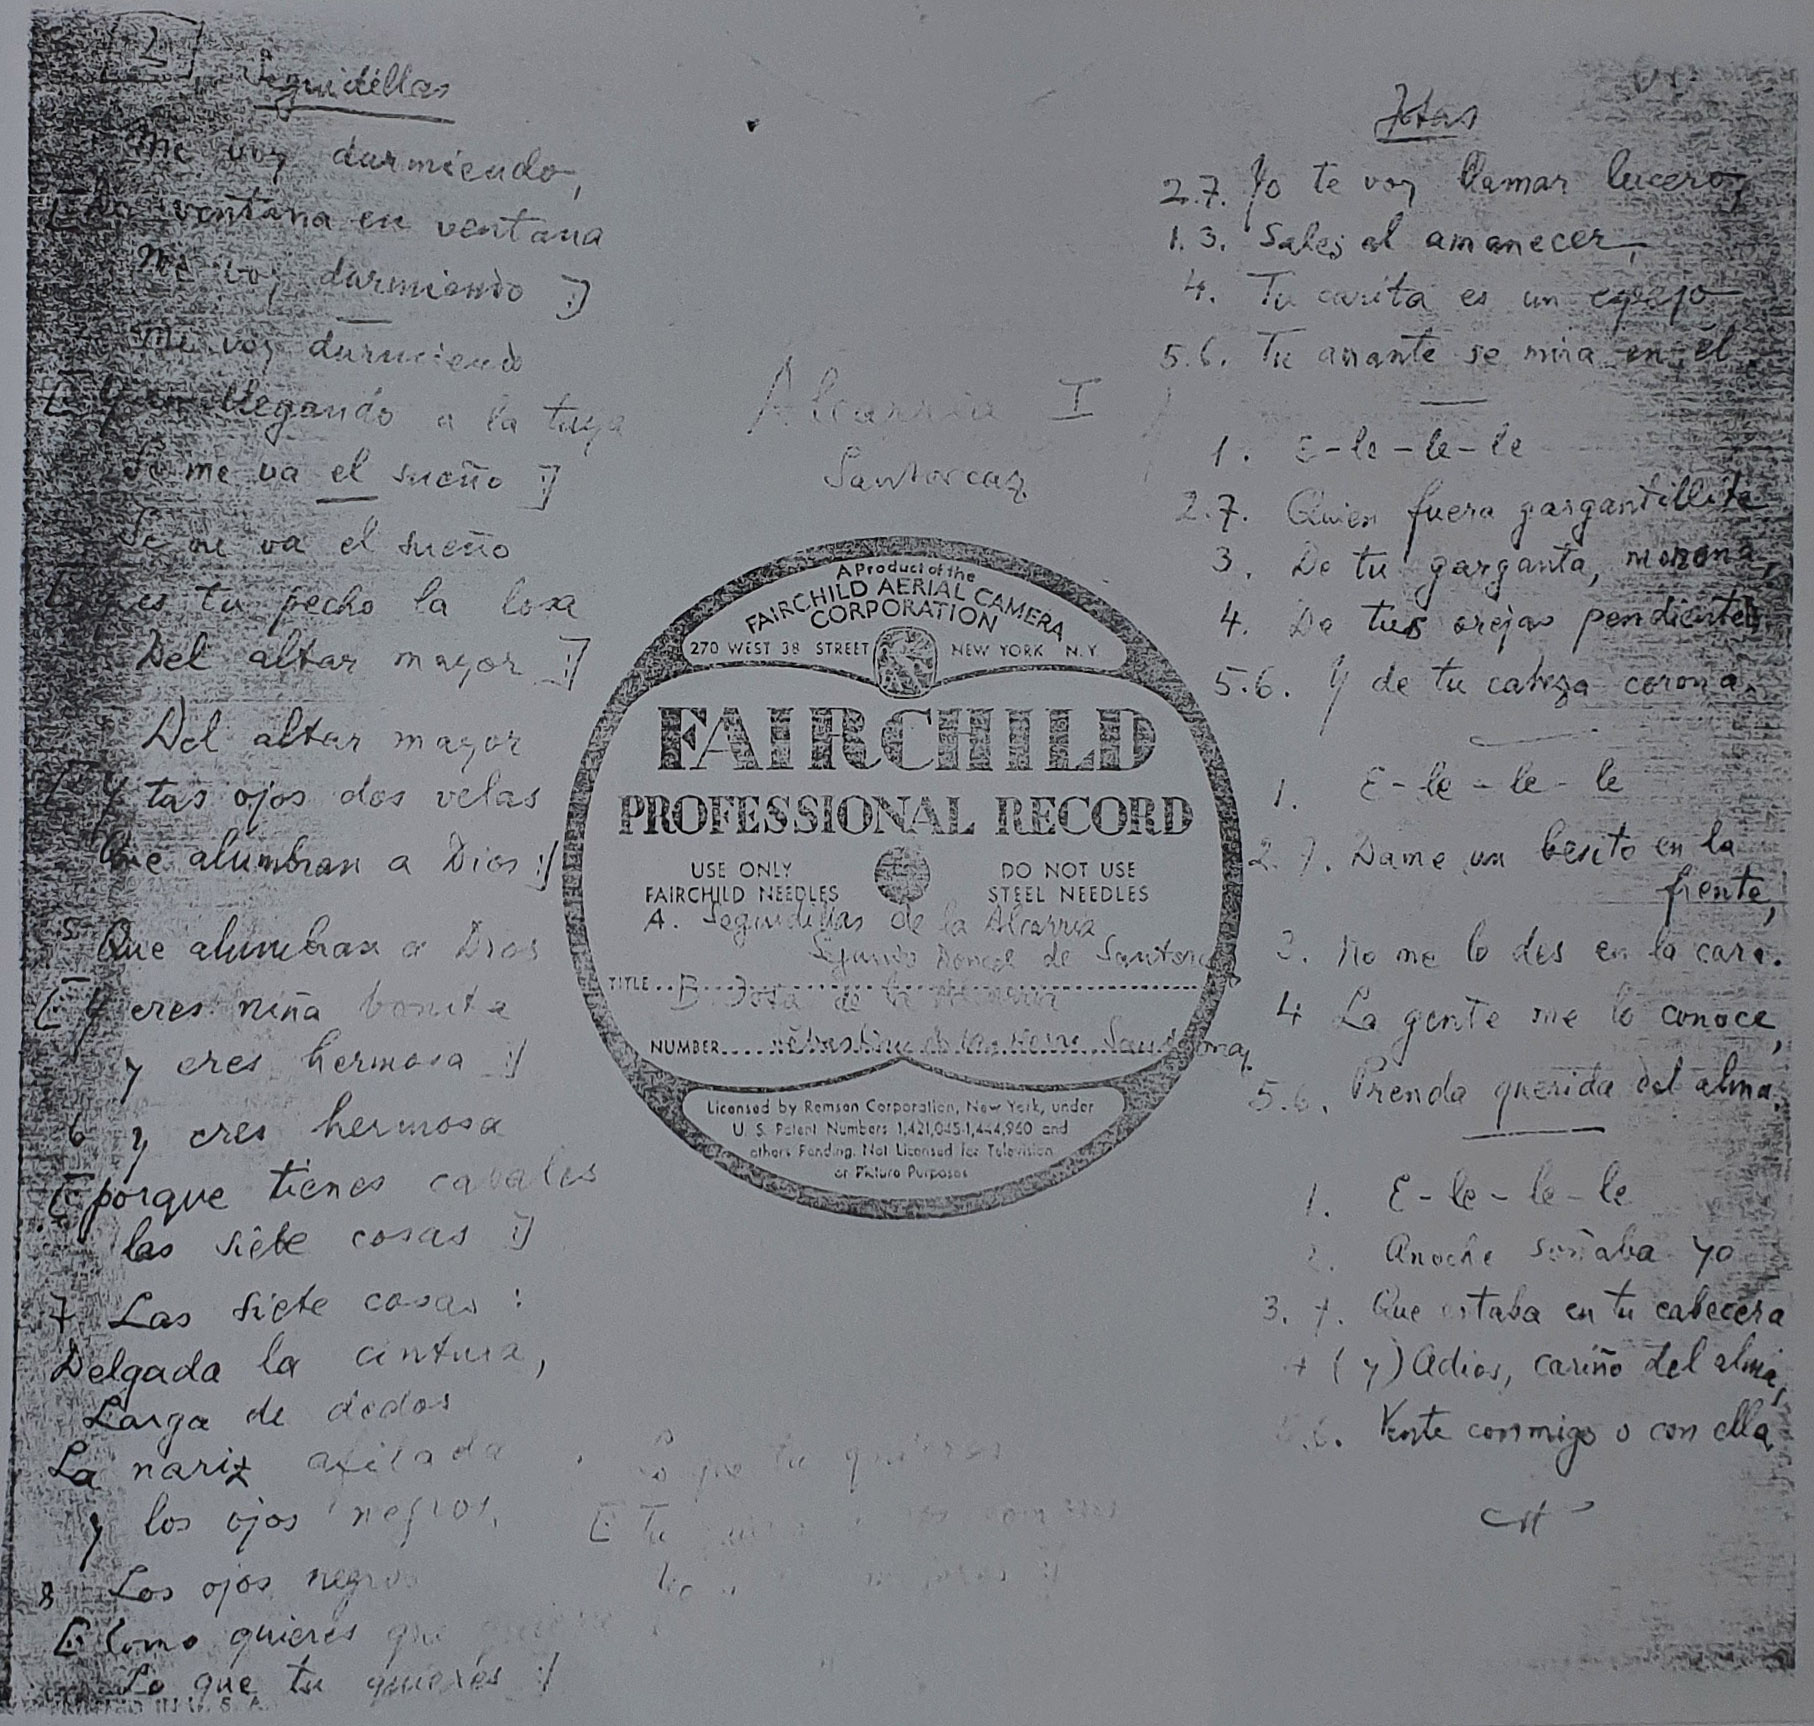 [2] Seguidillas
Me voy durmiendo,
[: De ventana en ventana
Me voy durmiendo :]
Me voy durmiendo
[: Y en llegando a la tuya
Se me va el sueño :]
Se me va el sueño
[: es tu pecho la losa
Del altar mayor :]
Del altar mayor
[: Y tus ojos dos velas
Que alumbran a Dios :]
5 Que alumbran a Dios
[: Y eres niña bonita
y eres hermosa :]
6 y eres hermosa
[: porque tienes cabales
las siete cosas :]
7 Las siete cosas :
Delgada la cintura,
Larga de dedos
La nariz afilada
y los ojos negros.
8 Los ojos negros
[: Como quieres que
Lo que tu quieres :]
Lo que tu quieres
[: Tu
Alcarria I
Santorcaz
A Product of the
FAIRCHILD AERIAL CAMERA
CORPORATION
270 WEST 38 STREET NEW YORK N.Y.
FAIRCHILD
PROFESSIONAL RECORD
USE ONLY DO NOT USE
FAIRCHILD NEEDLES STEEL NEEDLES
A. Seguidillas de la Alcarria
Segundo Doncel de Santorcaz
TITLE B. Jota de la Alcarria
NUMBER
Licensed by Remsen Corporation, New York, under
U. S. Patent Numbers 1,421,045-1,444,960 and
others Pending. Not Licensed for Television
or Picture Purposes
Jotas
2.7. Yo te voy llamar lucero,
1.3. Sales al amanecer,
4. Tu carita es un espejo
5.6. Tu amante se mira en él.
1. E-le-le-le
2.7. Quien fuera gargantillita
3. De tu garganta, morena,
4. De tus orejas pendientes
5.6. Y de tu cabeza corona.
1. E-le-le-le
2.7. Dame un besito en la
frente,
3. No me lo des en la cara.
4 La gente me lo conoce,
5.6. Prenda querida del alma.
1. E-le-le-le
2. Anoche soñaba yo
3. 7. Que estaba en tu cabecera
4 (y) Adios, cariño del alma,
5.6. Vente conmigo o con ella